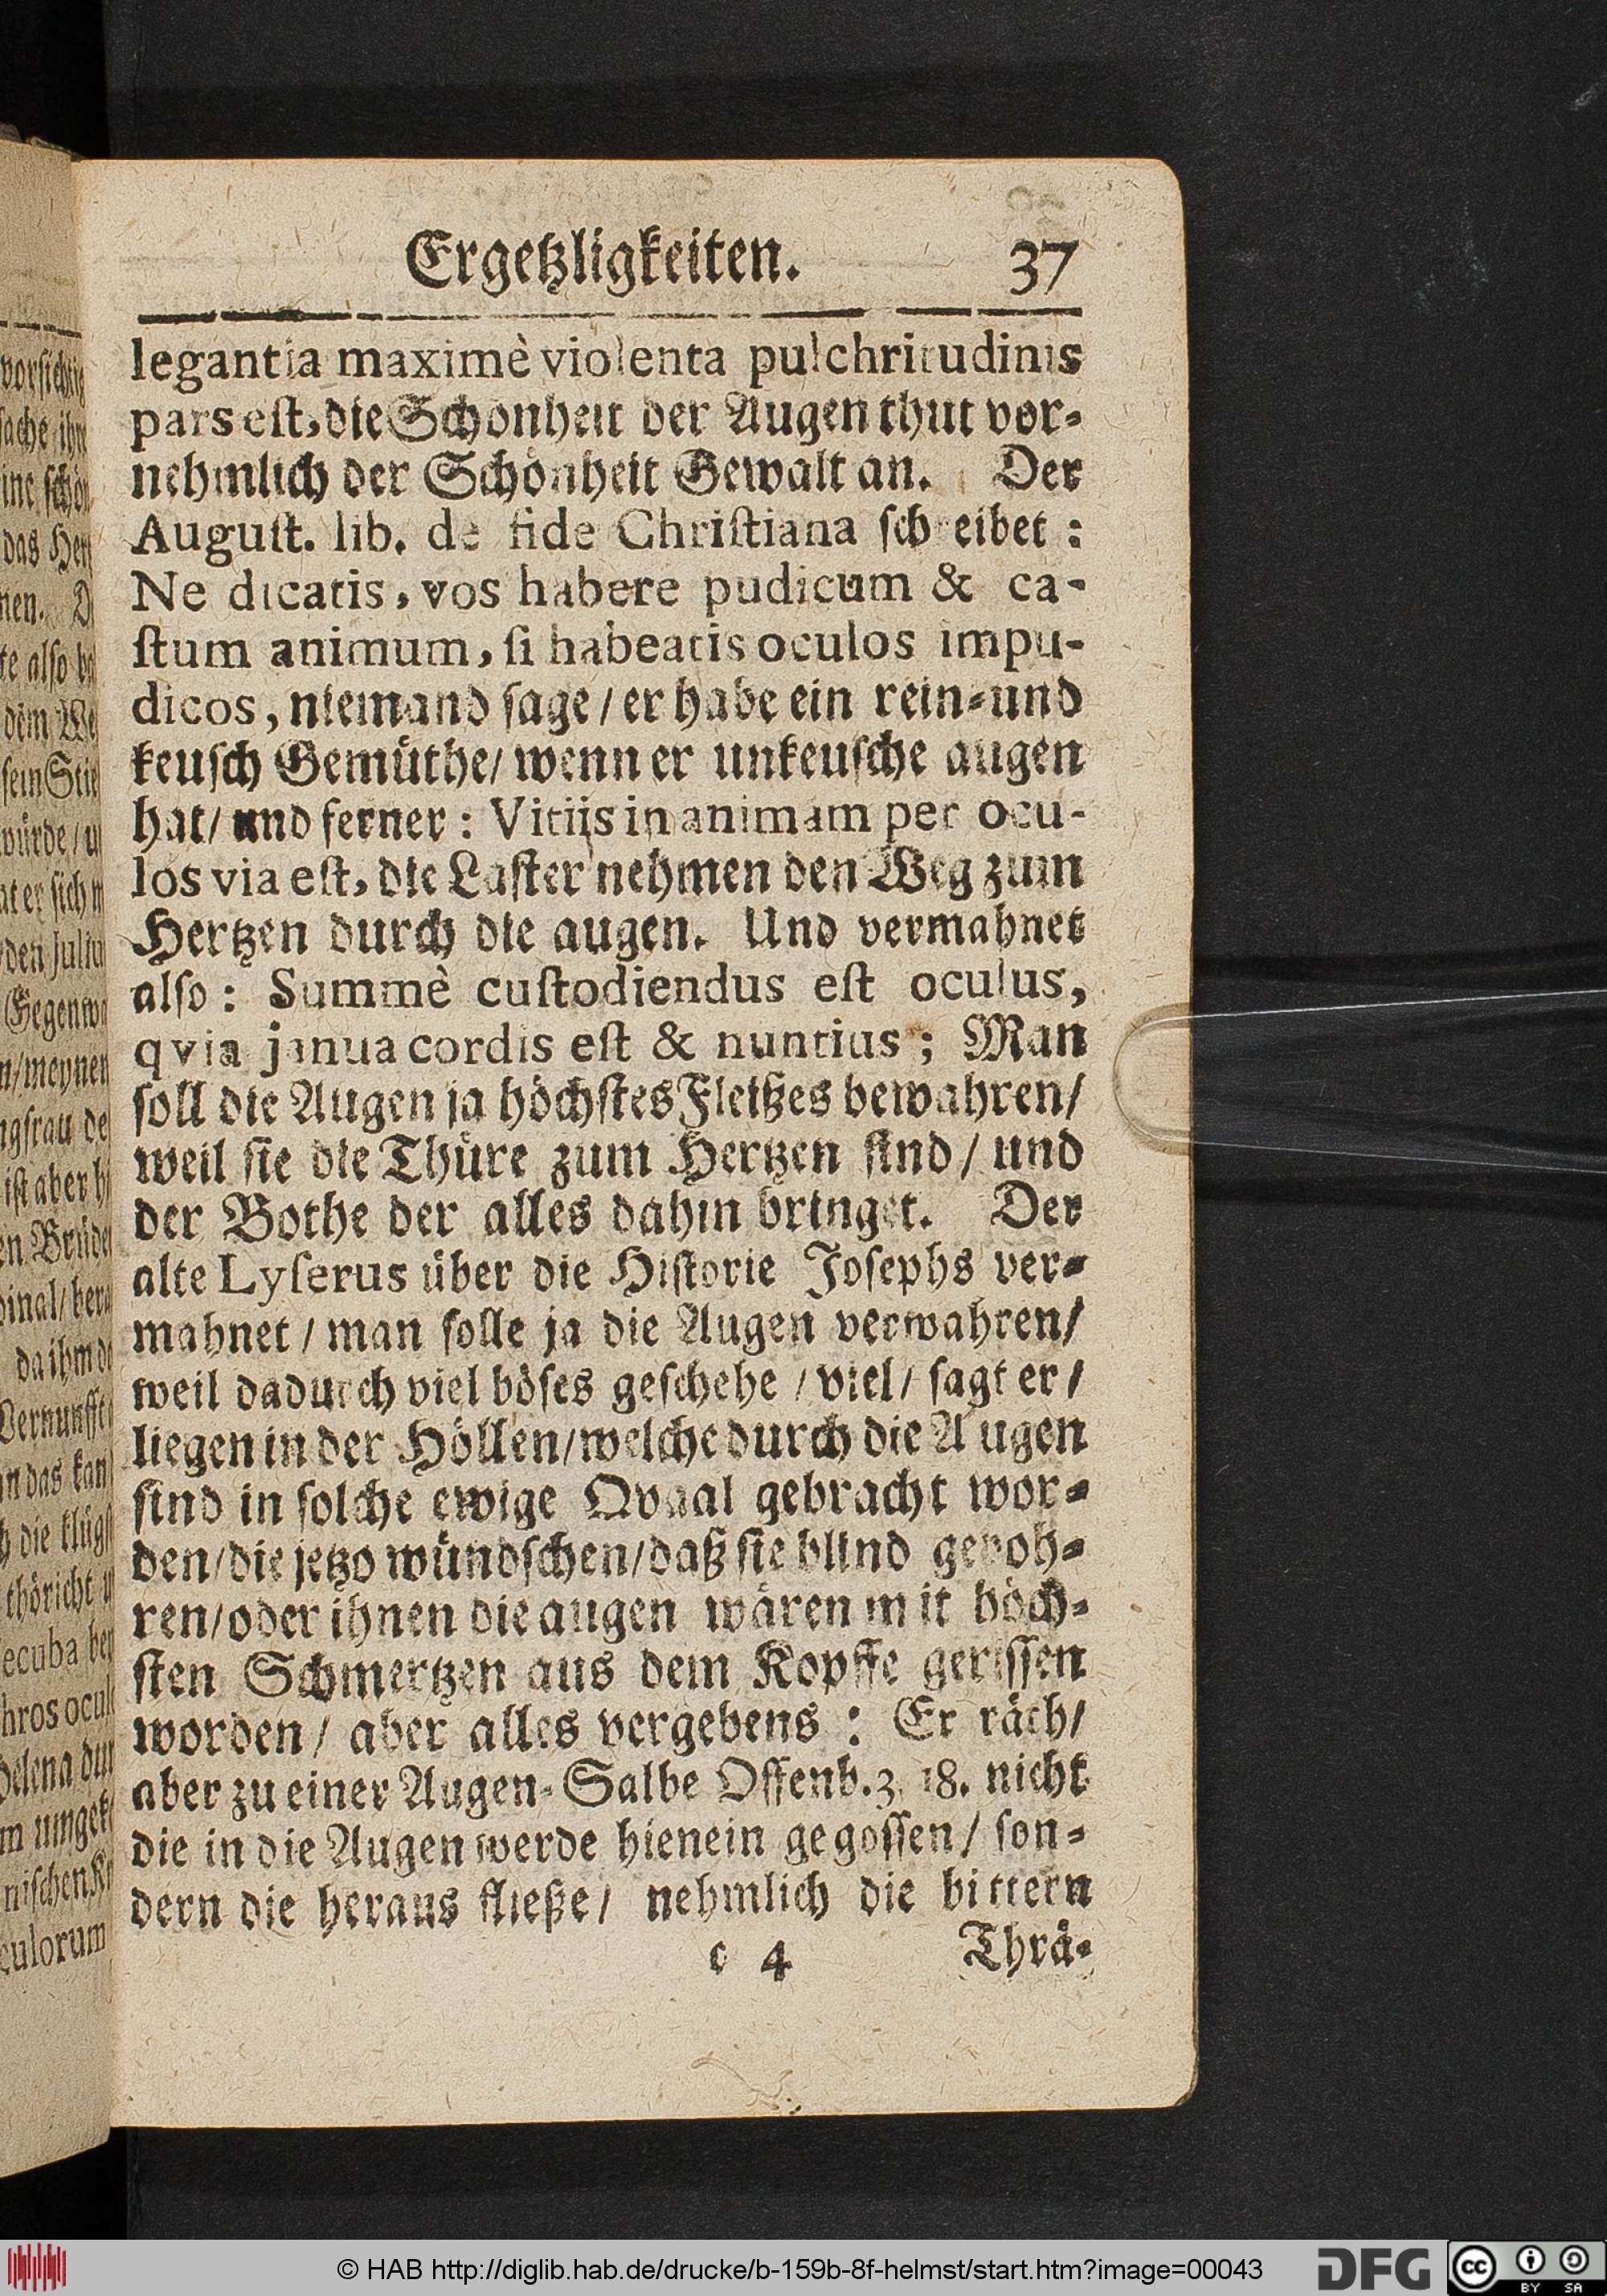 Ergetzligkeiten. 37
legantia maximè violenta pulchritudinis
pars est, die Schönheit der Augen thut vor-
nehmlich der Schönheit Gewalt an. Der
August. lib. de fide Christiana schreibet:
Ne dicatis, vos habere pudicum & ca-
stum animum, si habeatis oculos impu-
dicos, niemand sage/ er habe ein rein- und
keusch Gemüthe/ wenn er unkeusche augen
hat/ und ferner: Vitiis in animam per ocu-
los via est, die Laster nehmen den Weg zum
Hertzen durch die augen. Und vermahnet
also: Summè custodiendus est oculus,
qvia janua cordis est & nuntius; Man
soll die Augen ja höchstes Fleißes bewahren/
weil sie die Thüre zum Hertzen sind/ und
der Bothe der alles dahin bringet. Der
alte Lyserus über die Historie Josephs ver-
mahnet/ man solle ja die Augen verwahren/
weil dadurch viel böses geschehe/ viel/ sagt er/
liegen in der Höllen/ welche durch die Augen
sind in solche ewige Qvaal gebracht wor-
den/ die jetzo wündschen/ daß sie blind geboh-
ren/ oder ihnen die augen wären mit höch-
sten Schmertzen aus dem Kopffe gerissen
worden/ aber alles vergebens: Er räth/
aber zu einer Augen-Salbe Offenb. 3, 18. nicht
die in die Augen werde hienein gegossen/ son-
dern die heraus fließe/ nehmlich die bittern
c 4 Thrä-
vorsichtig
sache ihr
das Her
nen.
te also
dem We
sein Stie
würde/ u
at er sich
den Juliu
Gegenwa
n/ meynen
ngfrau de
ist aber
en Brüder
dinal/
da ihm
Vernunfft
n das kan
die klügst
thöricht
ecuba
hros ocul
Helena
m
nischen
culorum
© HAB http://diglib.hab.de/drucke/b-159b-8f-helmst/start.htm?image=00043
DFG
cc BY SA